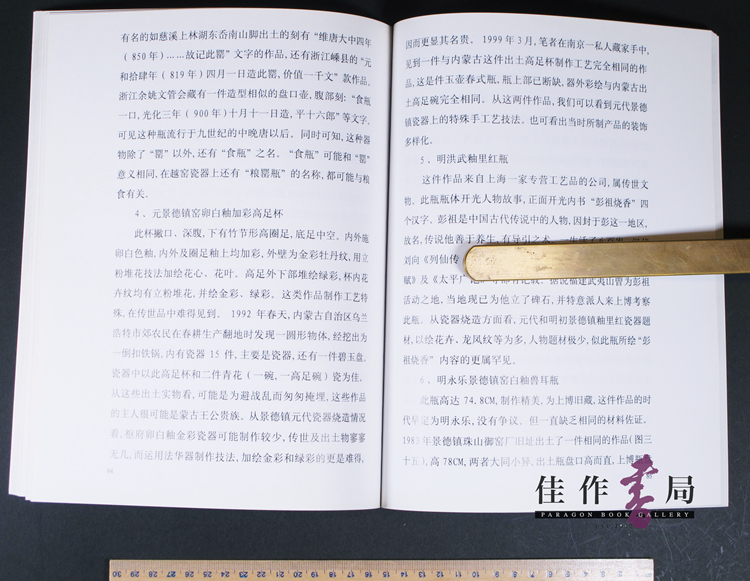 有名的如慈溪上林湖东岙南山脚出土的刻有“维唐大中四年
(850年)……故记此罂”文字的作品, 还有浙江嵊县的“元
和拾肆年(819年)四月一日造此罂, 价值一千文”款作品,
浙江余姚文管会藏有一件造型相似的盘口壶, 腹部刻: “食瓶
一口, 光化三年(900年)十月十一日造, 平十六郎”等文字,
可见这种瓶流行于九世纪的中晚唐以后。同时可知, 这种器
物除了“罂”以外, 还有“食瓶”之名。“食瓶”可能和“罂”
意义相同, 在越窑瓷器上还有“粮罂瓶”的名称, 都可能与粮
食有关。
4、元景德镇窑卵白釉加彩高足杯
此杯撇口、深腹, 下有竹节形高圈足, 底足中空。内外施
卵白色釉, 内外及圈足釉上均加彩, 外壁为金彩牡丹纹, 用立
粉堆花技法加绘花心、花叶。高足外下部堆绘绿彩, 杯内花
卉纹均有立粉堆花, 并绘金彩、绿彩。这类作品制作工艺特
殊, 在传世品中难得见到。1992年春天, 内蒙古自治区乌兰
浩特市郊农民在春耕生产翻地时发现一圆形物体, 经挖出为
一倒扣铁锅, 内有瓷器15件, 主要是瓷器, 还有一件碧玉盘。
瓷器中以此高足杯和二件青花(一碗, 一高足碗)瓷为佳。
从这些出土实物看, 可能是为避战乱而匆匆掩埋, 这些作品
的主人很可能是蒙古王公贵族。从景德镇元代瓷器烧造情况
看, 枢府卵白釉金彩瓷器可能制作较少, 传世及出土物寥寥
无几, 而运用法华器制作技法, 加绘金彩和绿彩的更是难得,
84
因而更显其名贵。1999年3月, 笔者在南京一私人藏家手中,
见到一件与内蒙古这件出土高足杯制作工艺完全相同的作
品, 这是件玉壶春式瓶, 瓶上部已断缺, 器外彩绘与内蒙古出
土高足碗完全相同。从这两件作品, 我们可以看到元代景德
镇瓷器上的特殊手工艺技法。也可看出当时所制产品的装饰
多样化。
5、明洪武釉里红瓶
这件作品来自上海一家专营工艺品的公司, 属传世文
物。此瓶瓶体开光人物故事, 正面开光内书“彭祖烧香”四
个汉字。彭祖是中国古代传说中的人物, 因封于彭这一地区,
故名, 传说他善于养生, 有导引之术
刘向《列仙传
赋》及《太平广记
据说福建武夷山曾为彭祖
活动之地, 当地现已为他立了碑石, 并特意派人来上博考察
此瓶。从瓷器烧造方面看, 元代和明初景德镇釉里红瓷器题
材, 以绘花卉、龙凤纹等为多, 人物题材极少, 似此瓶所绘“彭
祖烧香”内容的更属罕见。
6、明永乐景德镇窑白釉兽耳瓶
此瓶高达74.8CM, 制作精美, 为上博旧藏, 这件作品的时
代早定为明永乐, 没有争议。但一直缺乏相同的材料佐证。
年景德镇珠山御窑厂旧址出土了一件相同的作品(图三
十五), 高78CM, 两者大同小异, 出土瓶盘口高而直, 上博瓶
85
佳作书局
PARAGON BOOK GALLERY
30 29 28 27 26 25 24 23 22 21 20 19 18 17 16 15 14 13 12 11 10 9 8 7 6 5 4 3 2 1